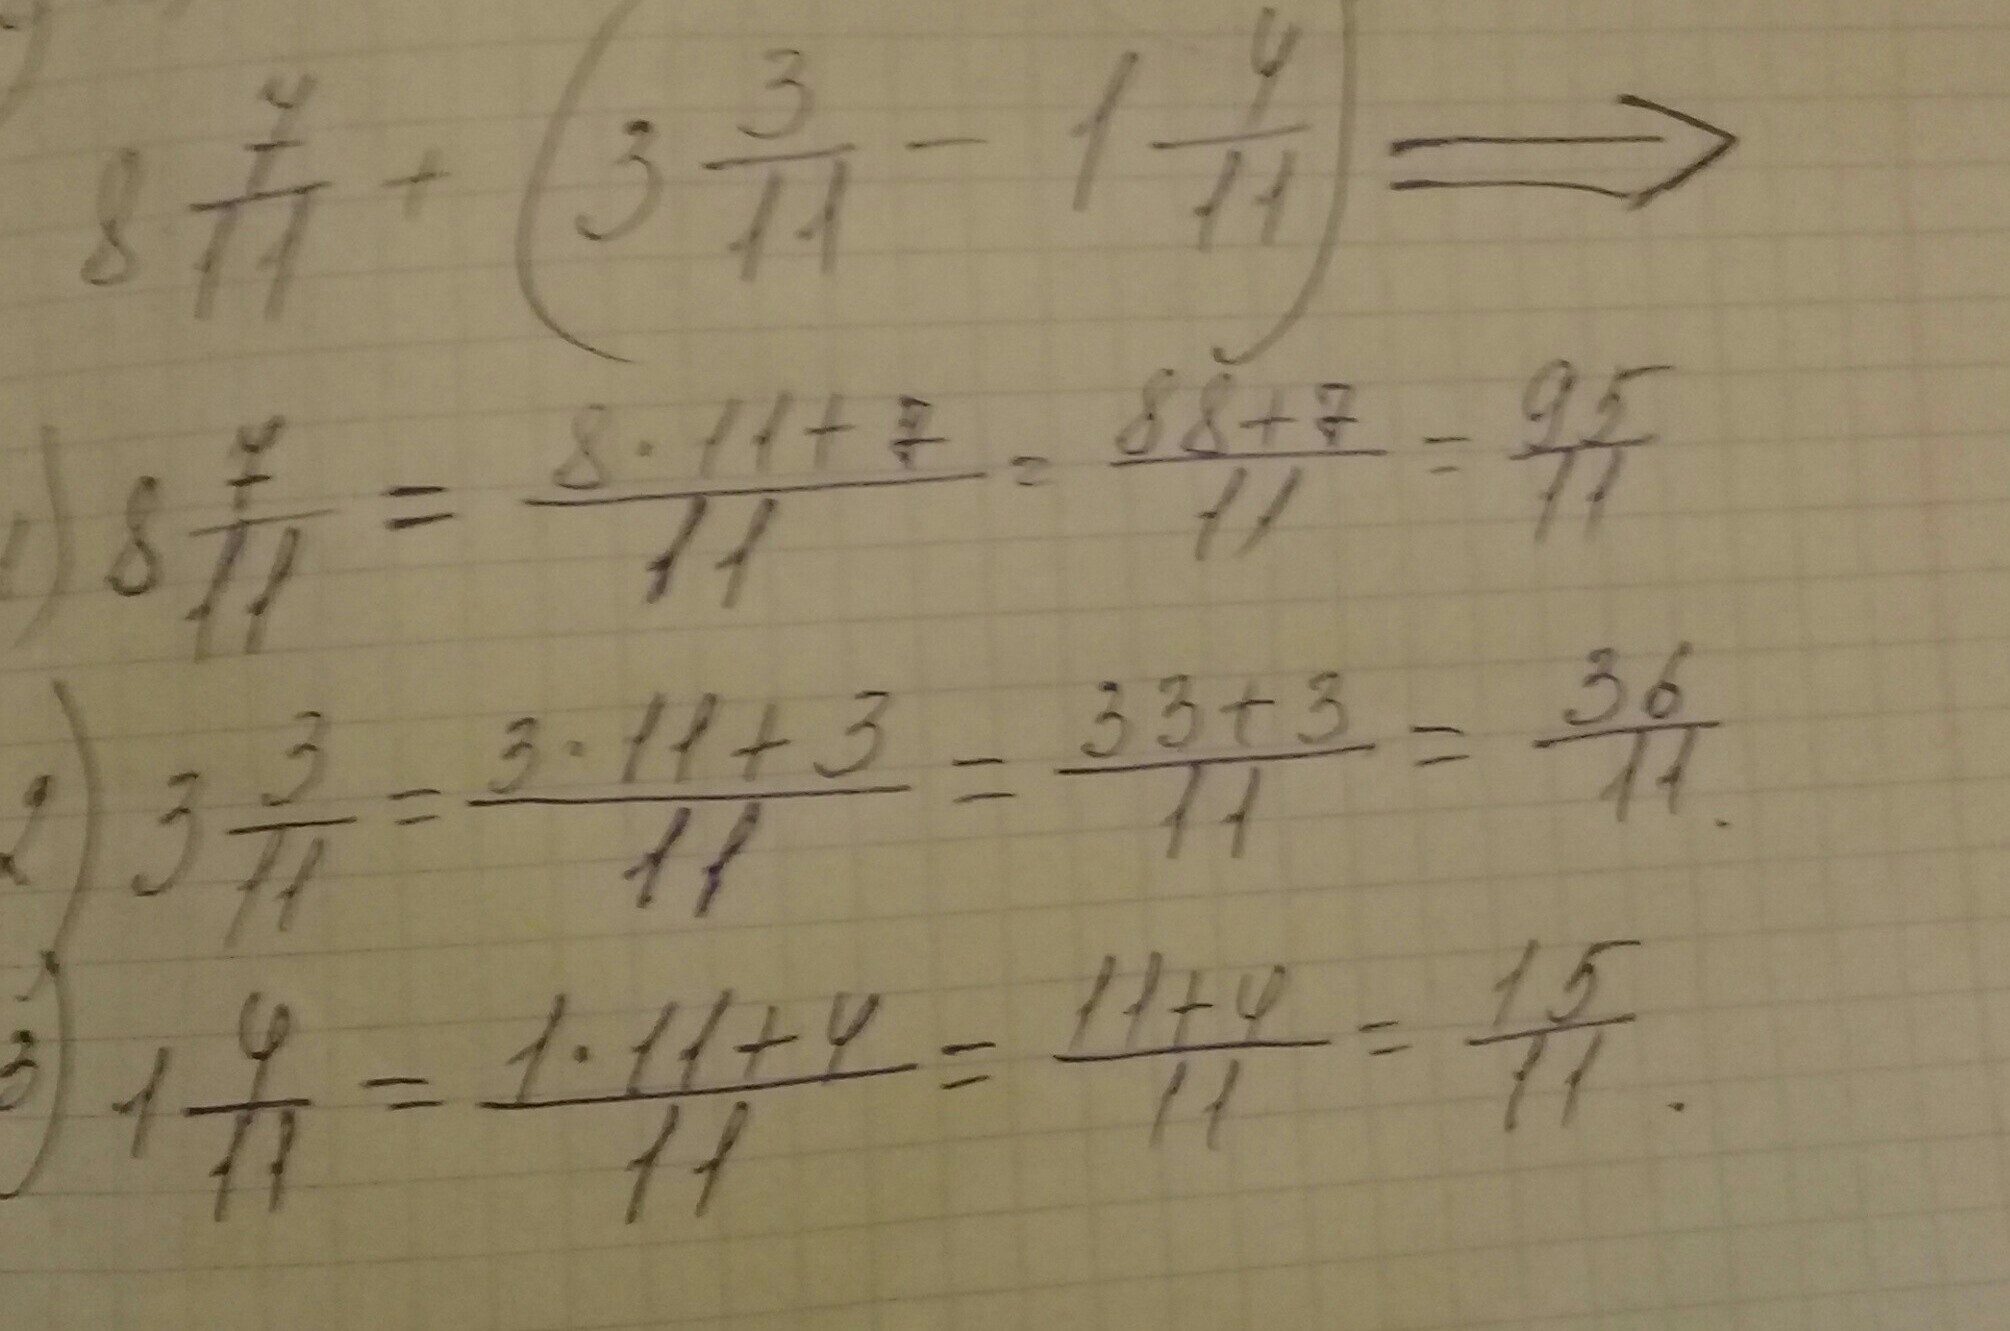 8 7/11 + (3 3/11 − 1 4/11) ⟹
1) 8 7/11 = (8·11+7)/11 = (88+7)/11 = 95/11
2) 3 3/11 = (3·11+3)/11 = (33+3)/11 = 36/11.
3) 1 4/11 = (1·11+4)/11 = (11+4)/11 = 15/11.